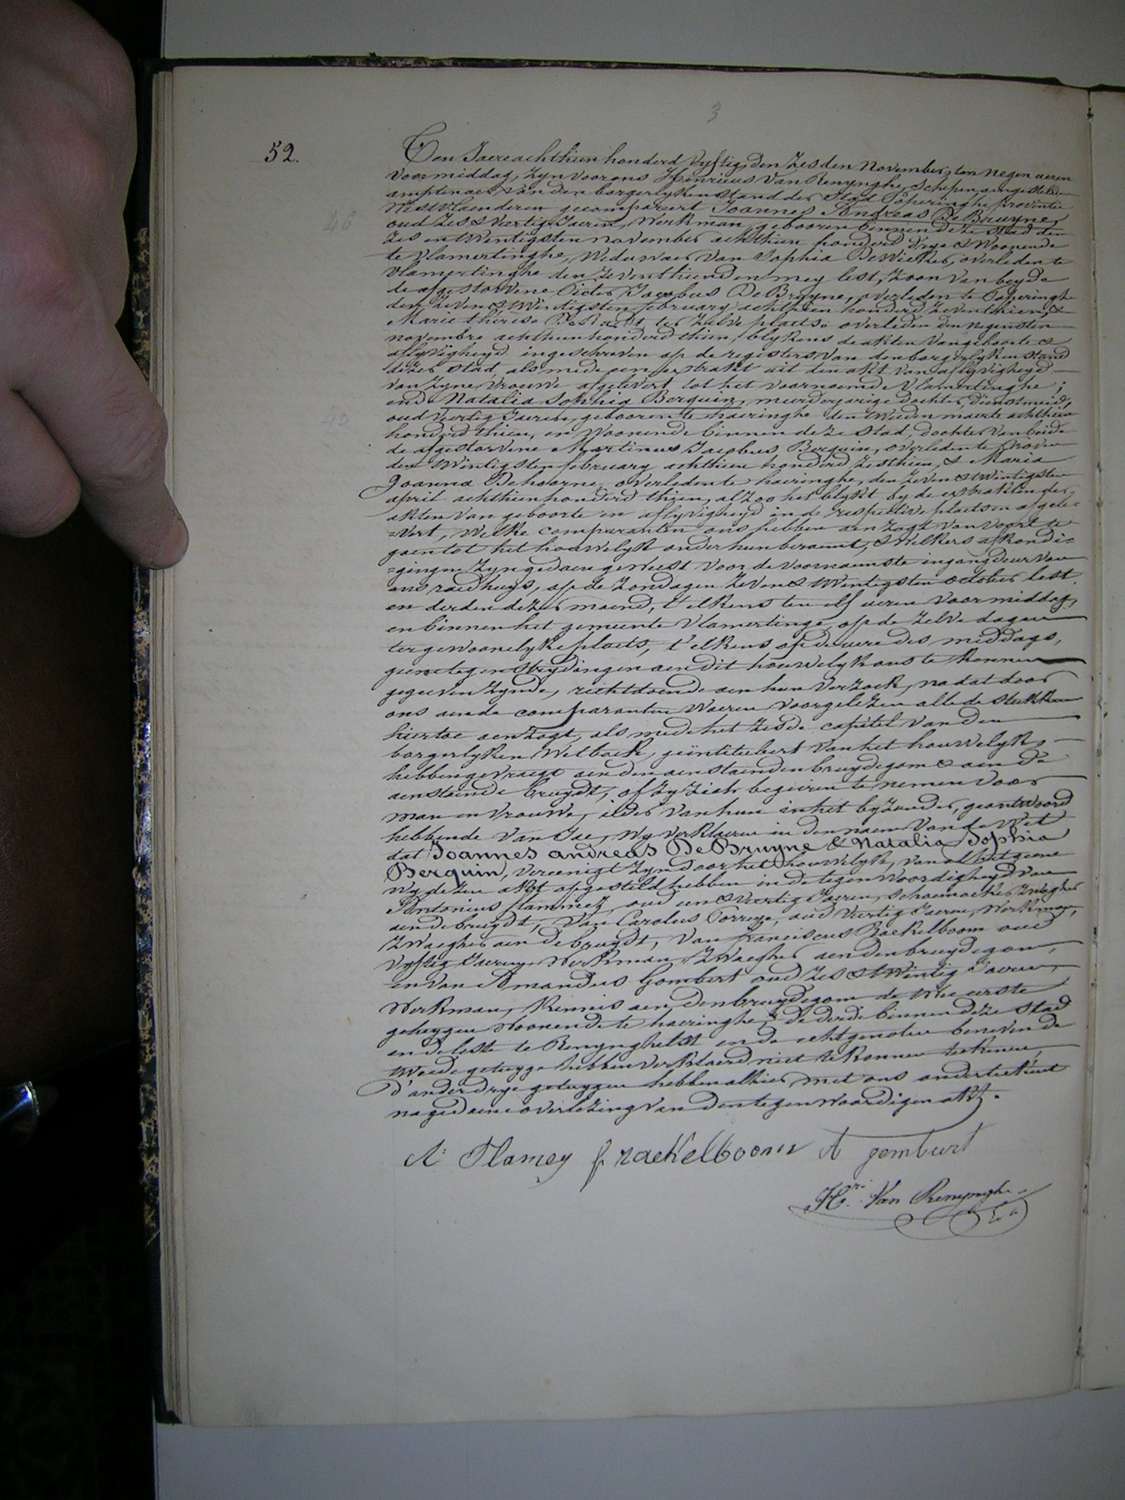 3
52.
Ten Jaere achthien honderd vyftig, den zesden November, ten negen ueren
voormiddag, zyn voor ons Henricus Van Renynghe, Schepen, aengestelden
amptenaer van den borgerlyken stand der Stad Poperinghe, provintie
Westvlaenderen gecompareert Joannes Andreas De Bruyne,
oud zes & veertig Jaeren, Werkman, gebooren binnen deze stad den
zes en twintigsten november achthien honderd drye & Woonende
te Vlamertinghe, Weduwaer van Sophia overleden te
Vlamertinghe den zeventhienden mey lest, zoon van beyde
de afgestorvene Pieter Jacobus De Bruyne, overleden te Poperinghe
den zeven & twintigsten february achthien honderd zeventhien, &
Marie Thérèse ter zelve plaetse overleden den negensten
novembre achthien honderd thien, blykens de akten van geboorte &
aflyvigheyd ingeschreven op de registers van den borgerlyken stand
dezer stad, als mede per extrakt uit den akt van aflyvigheyd
van zyne vrouwe afgelevert tot het voornoemde Vlamertinghe;
ende Natalia Sophia Berquin, meerderjarige dochter, dienstmeid,
oud veertig Jaeren, gebooren te haeringhe den tweeden maerte achthien
honderd thien, en Woonende binnen deze stad, dochter van beide
de afgestorvene Martinus Jacobus Berquin, overleden te
den twintigsten february achthien honderd zesthien, & Maria
Joanna Dehoorne, overleden te haeringhe, den zeven & twintigsten
april achthien honderd thien, alzoo het blykt by de extrakten der
akten van geboorte en aflyvigheyd in de respective plaetsen afgele-
vert, welke comparanten ons hebben aenzogt van voort te
gaen tot het houwelyk onder hun beraemt, & welkers afkondi-
gingen zyn gedaen geweest voor de voornaemste ingangdeur van
ons raedhuys, op de zondagen zeven & twintigsten october lest
en derden dezer maend, t'elkens ten elf ueren voormiddag,
en binnen het gemeente Vlamertinge, op de zelve dagen
ter gewoonelyke plaets, t'elkens op de uere des middags,
geene tegenstrydingen aen dit houwelyk ons te kennen
gegeeven zynde, rechtdoende aen hun verzoek, na dat door
ons aen de comparanten waeren voorgelezen alle de stukken
hiertoe aenzogt, als mede het zesde capitel van den
borgerlyken Wetboek, geïntituleert van het houwelyk,
hebben gevraegt aen den aenstaenden bruydegom & aen de
aenstaende bruydt, of zy zich begeeren te nemen voor
man en vrouwe, ider van hun in het byzonder, geantwoord
hebbende van Jae, Wy verklaeren in den naem van de Wet
dat Joannes Andreas De Bruyne & Natalia Sophia
Berquin, vereenigt zyn door het houwelyk, van al het geene
wy dezen akt opgesteld hebben in de tegenwoordigheyd van
Antonius flammey, oud een & veertig Jaeren, schoenmaeker, zwaegher
aen de bruydt, van Carolus Torreye, oud veertig Jaeren, Werkman,
zwaegher aen de bruydt, van franciscus Raekelboom oud
vyftig Jaeren Werkman, zwaegher aen den bruydegom,
en van Amandus Gombert oud zes & twintig Jaeren,
Werkman, kennis aen den bruydegom de twee eerste
getuygen woonende te haeringhe, de derde binnen deze stad
en de leste te Renynghelst en de echtgenoten beneven de
tweede getuyge hebben verklaerd niet te konnen teekenen,
d'ander drye getuygen hebben alhier met ons onderteekent
na gedaene overlezing van den tegenwoordigen akt.
A: Flamey f raekelboom A gombert
Hri. Van Renynghe